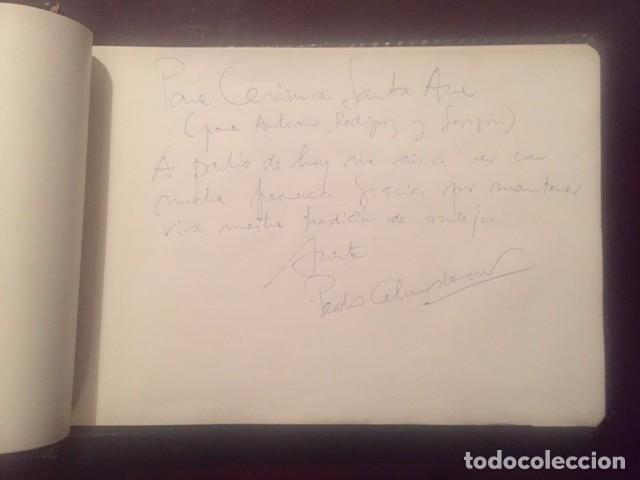 Para Cerámica Santa Ana
(para Antonio, Rodríguez y
A partir de hoy me vais a ver con
mucha frecuencia Gracias por mantener
viva nuestra tradición de azulejos.
Suerte!
Pedro Almodovar
todocoleccion